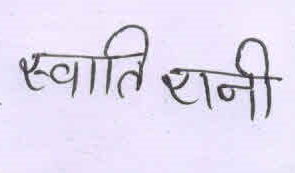 स्वाति रानी